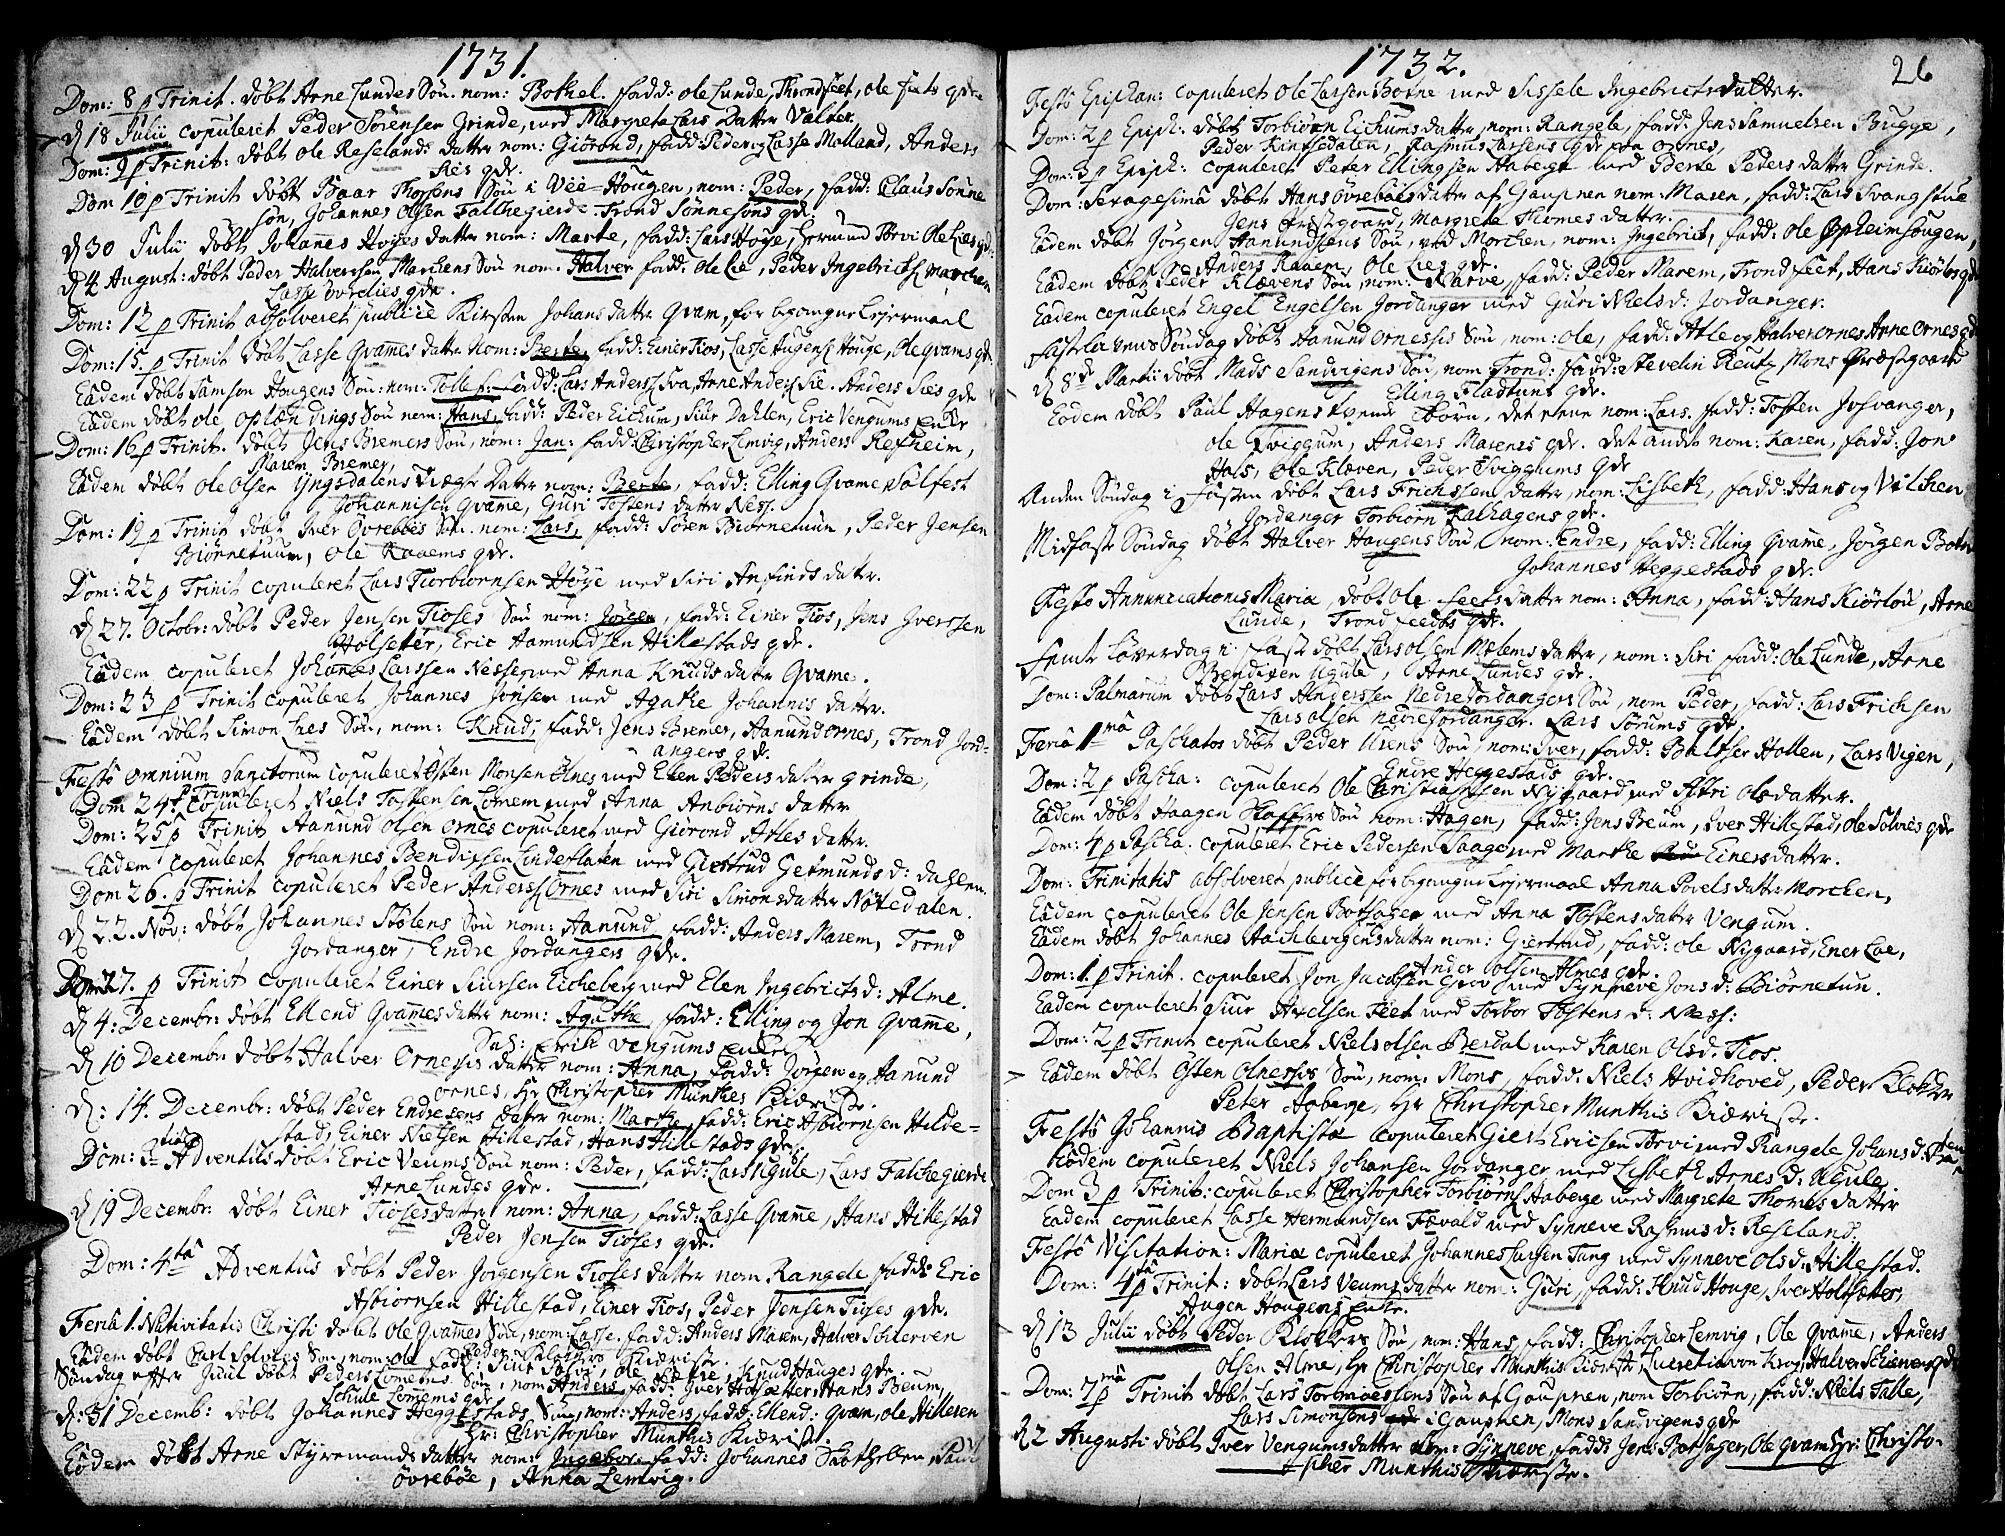 1731.
Dom: 8 p Trinit. döbt Arne Lundes Sön. nom: Bothel. fadd: Ole Lunde, Thrond feet, Ole
d 18 Julii copuleret Peder Sörensen Grinde, med Margreta Lars Datter Valten.
Dom: 9 p Trinit: döbt Ole Reselands datter nom: Giörond, fadd: Peder og Lasse Molland, Anders
Ries qdr.
Dom 10 p Trinit döbt Baar Thorsons Sön i Vee-Hougen, nom: Peder, fadd: Claus Sönne
sön, Johannes Olsen Falchegierde Trond Sönnesöns qdr.
d 30 Julii döbt Johannes Höyes datter nom: Marte, fadd: Lars Höye, Hermund Törvi Ole Lies qdr.
d 4 August: döbt Peder Halversen Marchens Sön nom: Halver fadd: Ole Lie, Peder Ingebrichs. Marchen
Lasse övrelies qdr.
Dom: 13 p Trinit absolveret publice Kirsten Johans datter Qvam, for begangne Lejermaal
Dom: 15 p Trinit döbt Lasse Qvames datter nom: Berte, fadd: Ener Tios, Lasse Augens. Houge, Ole Qvams qdr.
Eadem döbt Samson Hougens Sön: nom: Tolle fadd: Lars Anders. Sva, Arne Anders. Sie. Anders Sies qdr
Eadem döbt Ole Oplændings Sön nom: Hans, fadd: Peder Eichum, Siur Dahlen, Eric Vengums Enke
Dom: 16 p Trinit. döbt Jens Bremers Sön, nom: Jan: fadd: Christopher Lemvig, Anders Refheim,
Maren Bremer,
Eadem döbt Ole Olsen Yngsdalens Datter nom: Berte, fadd: Elling Qvame, Sölfest
Johannisen Qvame, Guri Tostens datter Ness.
Dom: 19 p Trinit döbt Iver Övreböes Sön. nom: Lars, fadd: Sören Biörnetun, Peder Jensen
Biörnetuun, Ole Raaems qdr.
Dom: 22 p Trinit copuleret Lars Torbiornsen Höye med Siri Anfinds datter.
d 27. Octobr: döbt Peder Jensen Tioses Sön nom: Jörgen, fadd: Einer Tios, Jens Iversen
Holseter, Eric Hamundsen Hillestads qdr.
Eadem copuleret Johannes Larssen Nesse med Anna Knuds datter Qvame.
Dom: 23 p Trinit copuleret Johannes Jonsen med Agathe Johannis datter.
Eadem döbt Simon Lies Sön, nom: Knud, fadd: Jens Bremer, Hanund Ornes, Trond Jord-
angers qdr.
Festo Omnium Sanctorum copuleret Östen Monsen Olnes med Elen Peders datter Grinde,
Dom 24 p Trin copuleret Niels Tostensen Lomem med Anna Anbiörns datter
Dom: 25 p Trinit Hanund Olsen Ornes copuleret med Giörond Atles datter.
Eadem copuleret Johannes Bendixsen Lindeflaten med Giertrud Germunds d: Dahlen.
Dom 26. p Trinit copuleret Peder Anderss. Ornes med Siri Simonsdatter Nötedalen.
d 22. Nov: döbt Johannes Stölens Sön nom: Hanund, fadd: Anders Marem, Trond
Jordanger, Endre Jordangers qdr.
Dom 27. p Trinit copuleret Einer Siursen Eicheberg med Elen Ingebrichs d: Alme.
d 4: Decembr: döbt Ellend Qvames datter nom: Agathe, fadd: Elling og Jon Qvame,
Sal: Erik Vengums Enke
d 10 Decembr döbt Halver Ornesis datter nom: Anna, fadd: Jörgen og Hanund
Ornes, Hr Christopher Munthes Kiæriste.
d: 14. Decembr: döbt Peder Endresens datter nom: Marthe, fadd: Eric Asbiornsen Hilde-
stad, Einer Nielsen Hillestad, Hans Hillestads qdr.
Dom: 3tia Adventus döbt Eric Veums Sön nom: Peder, fadd: Lars Ugule, Lars Falchegierde
Arne Lundes qdr.
d 19 Decembr: döbt Einer Tioses datter nom: Anna, fadd: Lasse Qvame, Hans Hillestad
Peder Jensen Tioses qdr.
Dom: 4ta Adventus döbt Peder Jorgensen Tioses datter nom Rangele fadd: Eric
Asbiornsen Hillestad, Einer Tios, Peder Jensen Tioses qdr.
Feria 1. Nativitatis Christi döbt Ole Qvames Sön, nom: Lasse, fadd: Anders Marem, Halver Schierven
Peder Klochers Kiæriste.
Eadem döbt Carl Solvies Sön, nom: Ole fadd: Siur Solvi, Ole Sætre, Knud Houges qdr.
Söndag efter Juul döbt Peders Lomems Sön, nom Anders, fadd: Iver Holsetter, Hans Beum,
Schule Lomems qdr.
d: 31 Decemb: döbt Johannes Heggestads Sön, nom: Anders, fadd: Ellend: Qvam, Ole Hilleren
Hr: Christopher Munthis Kiæriste.
Eadem döbt Arne Styremands datter nom: Ingebor. fadd: Johannes Povl
övreböe, Anna Lemvig.

1732. 26
Festo Epiphan: copuleret Ole Larsen Botne med Sissele Ingebrictsdatter.
Dom: 2 p Epiph: döbt Torbiörn Eichums datter, nom: Rangele, fadd: Jens Samuelsen Bugge,
Peder Kinsedalen, Rasmus Larsens qdr paa Ornes,
Dom: 3 p Epiph: copuleret Peter Ellingsen Haberge med Berte Peders datter Grinde.
Dom: Sexagesima döbt Hans Övreböes datter af Gaupnen nom: Maren, fadd: Lars Svangstue
Jens Præstgaard, Margrete Thomes datter.
Eadem döbt Jörgen Hanundsens Sön, ved Morchen, nom: Ingebrict, fadd: Ole Opheimsougen,
Anders Raaem, Ole Lies qdr.
Eadem döbt Peder Klævens Sön, nom: Narve, fadd: Peder Marem, Trond feet, Hans Kiörlos qdr
Eadem copuleret Engel Engelsen Jordanger med Guri Niels d: Jordanger.
fastelavens Söndag döbt Hanund Ornessis Sön, nom: Ole, fadd: Atle og Halver Ornes Arne Ornes qdr
d 8de Martii döbt Mads Sandvigens Sön, nom Trond: fadd: Stevelin Reutz Mons Præstgaard
Elling Fladtuns qdr.
Eodem döbt Paul Hagens tvende Börn, det eene nom: Lars. fadd: Tosten Josvanger,
Ole Qviggum, Anders Marems qdr. det andet nom: Karen, fadd: Jon
Hals, Ole Klæven, Peder Tviggums qdr
Anden Söndag i fasten döbt Lars Frichssen datter, nom: Lisbeth, fadd: Hans og Vilken
Jordanger Torbiörn Kalhagens qdr.
Midfaste Söndag döbt Halver Haugens Sön nom: Endre, fadd: Elling Qvame, Jörgen Botn
Johannes Heggestads qdr.
Festo Annunciationis Mariæ, döbt Ole feets datter nom: Anna, fadd: Hans Kiörlou, Arne
Lunde, Trond feets qdr.
femte Löverdag i faste döbt Lars Olsen Mælems datter, nom: Siri fadd: Ole Lunde, Arne
Bendixen Ugule, Arne Lundes qdr.
Dom: Palmarum döbt Lars Anderssen Nedre Jordangers Sön, nom Peder, fadd: Lars Frichsen
Lars Olsen nedre Jordanger. Lars Sorums qdr.
Feria 1ma Paschatos döbt Peder Urens Sön, nom: Iver, fadd: Baltser Hollen, Lars Vigen,
Endre Heggestads qdr.
Dom: 2 p Pascha: copuleret Ole Christiansen Nygaard med Astri Olsdatter.
Eadem döbt Haagen Skaffers Sön nom: Hagen, fadd: Jens Beum, Iver Hillestad, Ole Solvies qdr
Dom: 4 p Pascha: copuleret Eric Pedersen Saage med Marthe Einersdatter.
Dom: Trinitatis absolveret publice for begangne Lejermaal Anna Povels datter Morchen,
Eadem copuleret Ole Jensen Botsager med Anna Tostensdatter Vengum.
Eadem döbt Johannes Hachlevigens datter nom: Giertrud, fadd: Ole Nygaard, Ener Loe,
Ander Olsen Almes qdr.
Dom: 1. p Trinit. copuleret Jon Jacobsen Grov med Synneve Jons d: Biörnetun.
Eadem copuleret Siur Axelsen Feet med Torbor Tostens d: Ness:
Dom: 2 p Trinit copuleret Niels Olsen Berdal med Karen Ols d. Tios.
Eadem döbt Östen Olnessis Sön, nom: Mons, fadd: Niels Hvidhoved, Peder Klokker
Peter Aaberge, Hr Christopher Munthis Kiæriste.
Festo Johannis Baptistæ copuleret Giert Ericsen Törvi med Rangele Johans d:
Eodem copuleret Niels Johansen Jordanger med Lisbeth Arnes d: Ugule.
Dom 3 p Trinit: copuleret Christopher Torbiörns. Haberge med Margrete Thomes datter
Eadem copuleret Lasse Hermundsen Fævald med Synneve Rasmus d: Reseland.
Festo Visitation: Mariæ copuleret Johannes Larsen Tang med Synneve Ols d. Hillestad.
Dom: 4ta p Trinit: döbt Lars Veums datter nom: Guri, fadd: Knud Houge, Iver Holsæter,
Augen Hougens Enke.
d 13 Julii döbt Peder Klokkers Sön, nom: Hans, fadd: Christopher Lemvig, Ole Qvame, Anders
Olsen Alme, Hr Christopher Munthis Kiærist Lucretia von Krog, Halver Schierven qdr
Dom: 7ma p Trinit döbt Lars Tormoessens Sön af Gaupnen, nom Torbiörn, fadd: Niels Talle,
Lars Simonsens i Gaupnen, Mons Sandvigens qdr
d 2 Augusti döbt Iver Vengums datter nom: Synneve, fadd: Jens Botsager, Ole Qvam Hr: Christo-
pher Munthis Kiæriste.